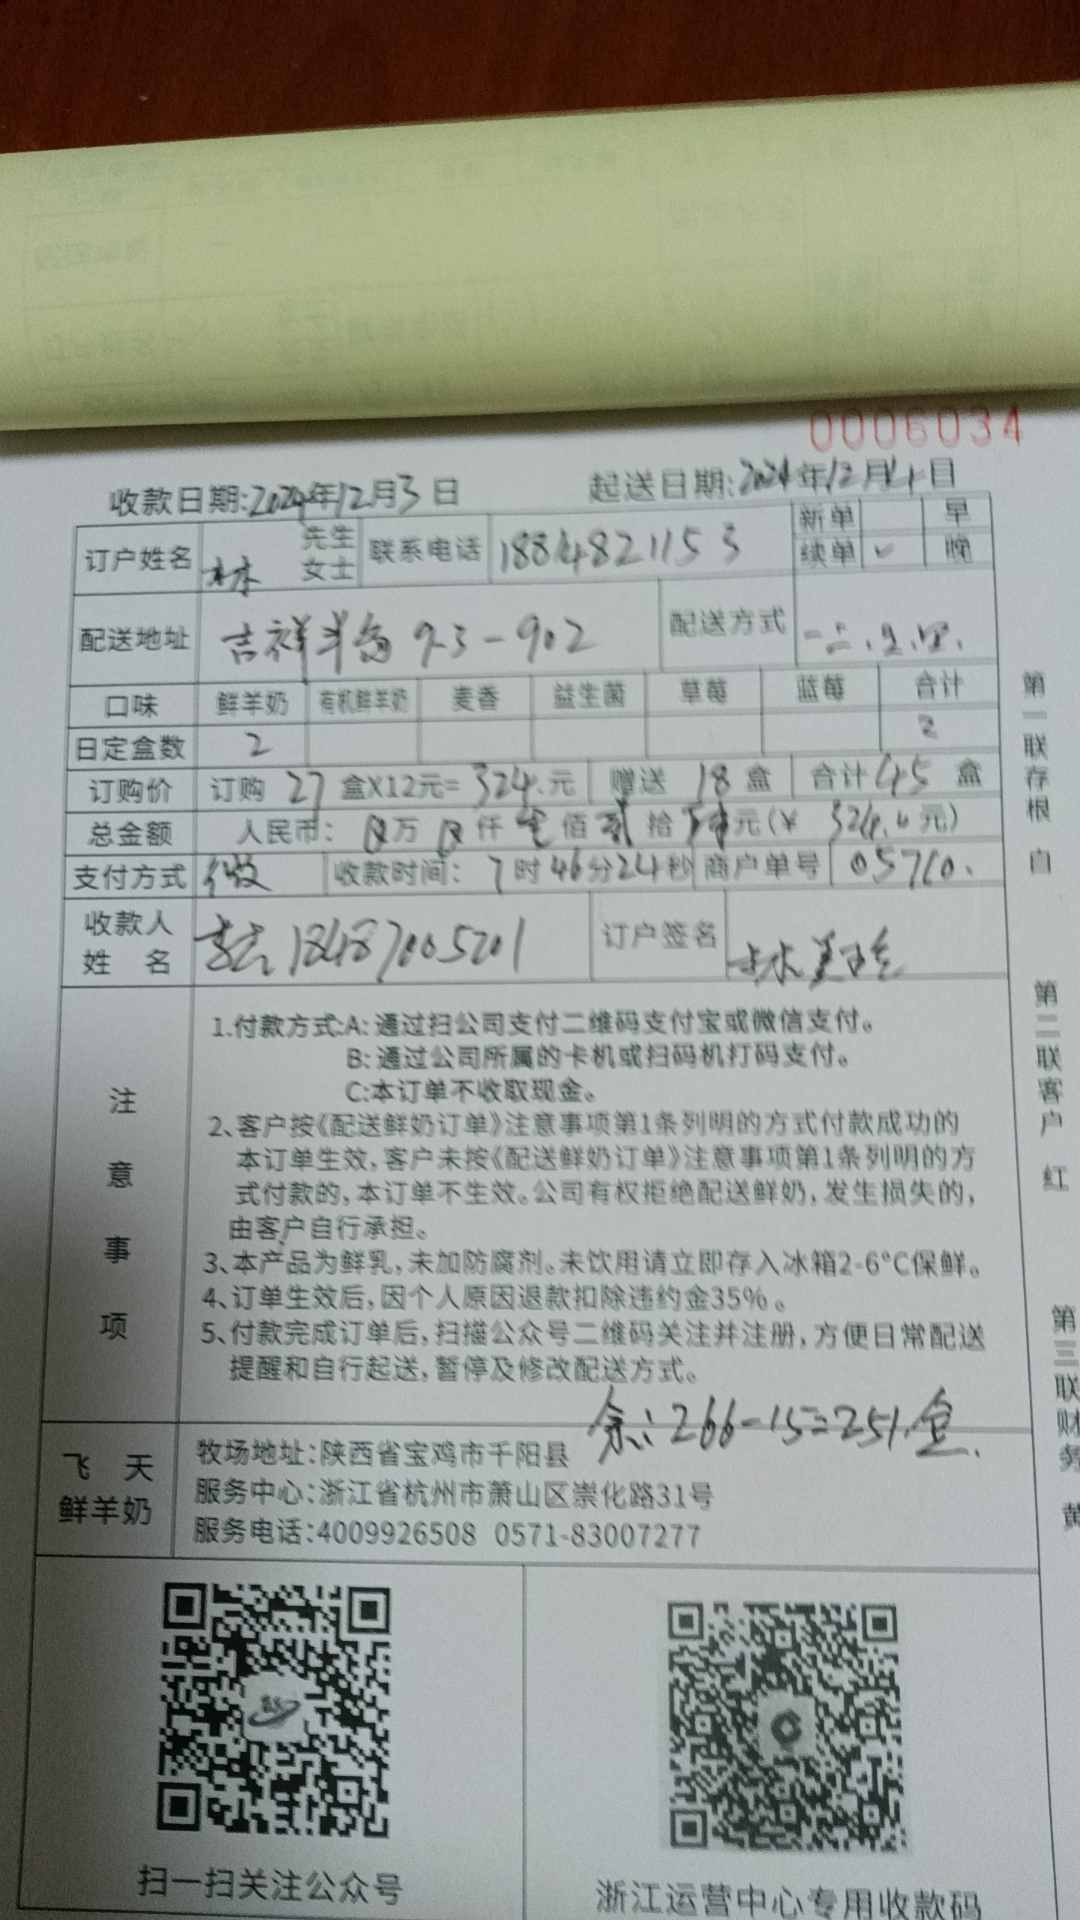 0006034
收款日期:2024年12月3日 起送日期:2024年12月4日
订户姓名 林 先生 女士 联系电话 1884821153 新单 早
续单 ✓ 晚
配送地址 吉祥半岛 9-3-902 配送方式 一.二.三.四.
口味 鲜羊奶 有机鲜羊奶 麦香 益生菌 草莓 蓝莓 合计
日定盒数 2 2
订购价 订购 27 盒X12元= 324.元 赠送 18 盒 合计 45 盒
总金额 人民币: 万 仟 佰 贰 拾 肆 元(¥ 324.0元)
支付方式 微 收款时间: 7时46分24秒 商户单号 05710.
收款人
姓 名 18487005201 订户签名 林美珍
注
意
事
项
1.付款方式:A: 通过扫公司支付二维码支付宝或微信支付。
B: 通过公司所属的卡机或扫码机打码支付。
C:本订单不收取现金。
2、客户按《配送鲜奶订单》注意事项第1条列明的方式付款成功的
本订单生效,客户未按《配送鲜奶订单》注意事项第1条列明的方
式付款的,本订单不生效。公司有权拒绝配送鲜奶,发生损失的,
由客户自行承担。
3、本产品为鲜乳,未加防腐剂。未饮用请立即存入冰箱2-6°C保鲜。
4、订单生效后,因个人原因退款扣除违约金35%。
5、付款完成订单后,扫描公众号二维码关注并注册,方便日常配送
提醒和自行起送,暂停及修改配送方式。
余:266-15=251.盒.
飞 天
鲜羊奶
牧场地址:陕西省宝鸡市千阳县
服务中心:浙江省杭州市萧山区崇化路31号
服务电话:4009926508 0571-83007277
扫一扫关注公众号
浙江运营中心专用收款码
第一联存根 白
第二联客户 红
第三联财务 黄